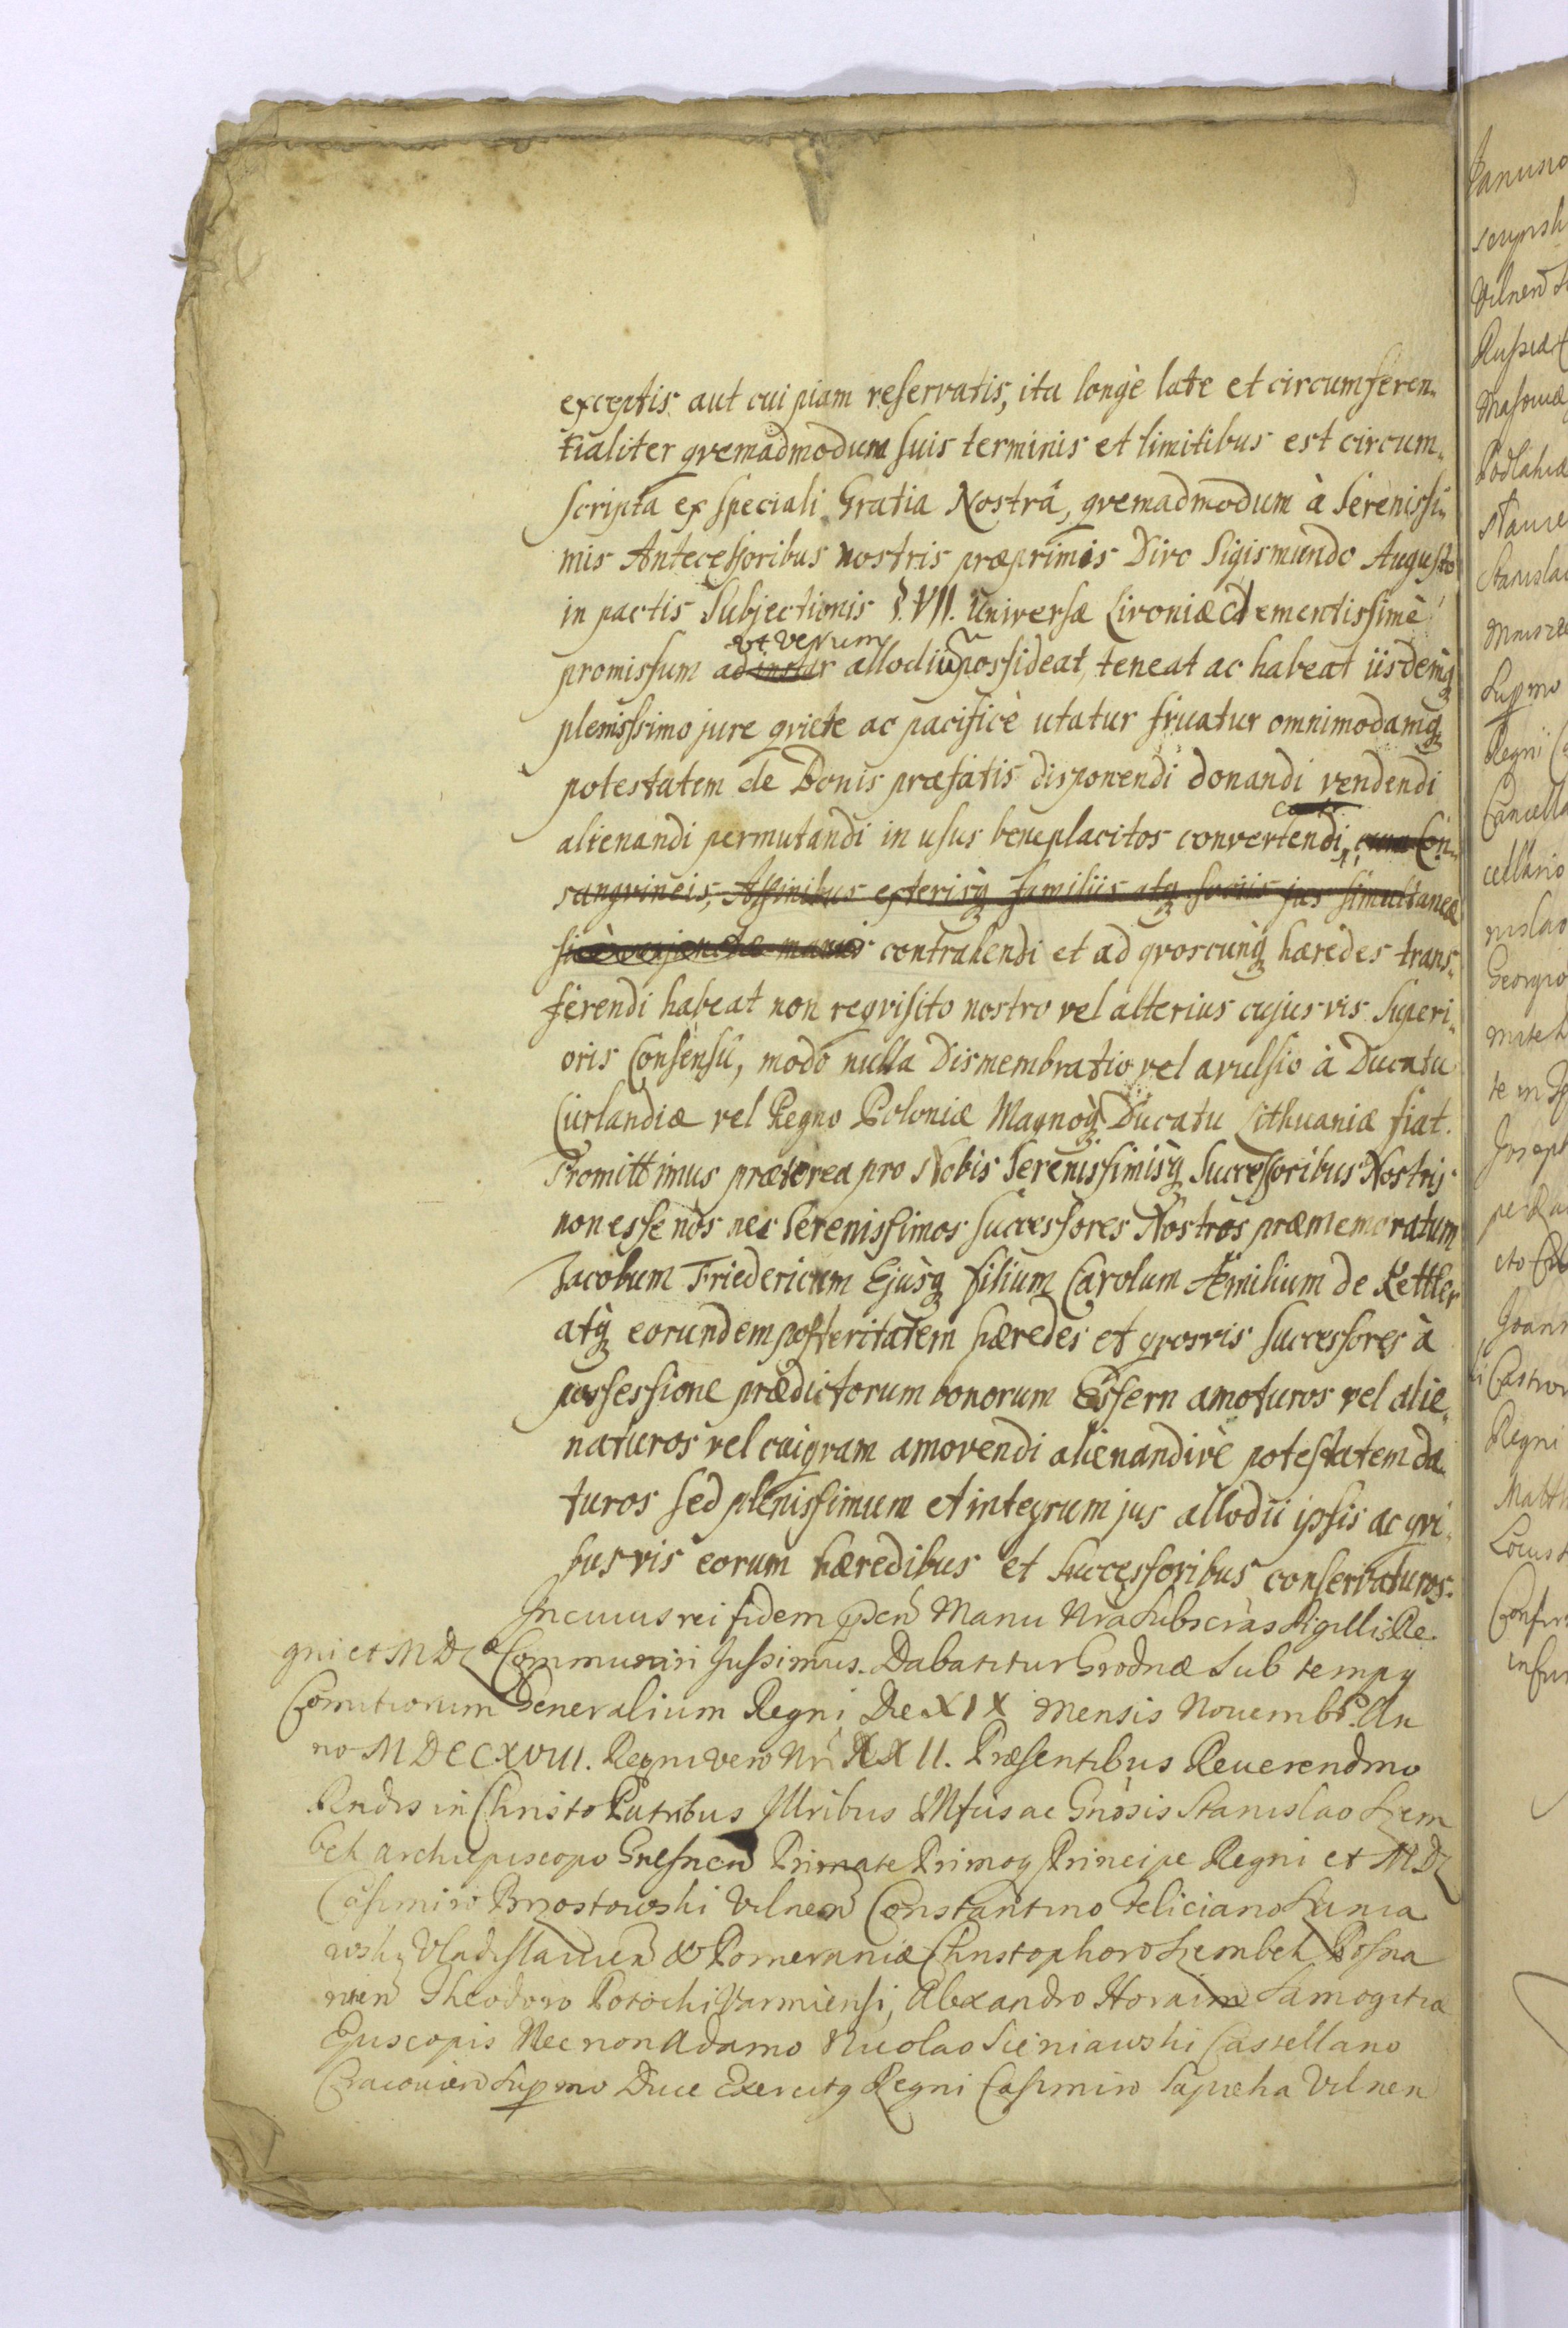 exceptis aut cui piam reservatis, ita longè late et circumferen-
tialiter qvemadmodum suis terminis et limitibus est circum-
scripta ex speciali Gratia Nostrâ, qvemadmodum à Serenissi-
mis Antecessoribus nostris præprimis Divo Sigismundo Augusto
in pactis Subjectionis §. VII. Universæ Livoniæ clementissimè
ut verum
promissum ad instar allodiũ possideat, teneat ac habeat iisdemq
plenissimo jure qviete ac pacificè utatur fruatur omnimodamq
potestatem de Bonis præfatis disponendi donandi vendendi
alienandi permutandi in usus beneplacitos convertendi, cum Con-
sangvineis, Affinibus exterisq familiis atq sociis jus simultaneæ
manus contrahendi et ad qvoscunq hæredes trans-
ferendi habeat non reqvisito nostro vel alterius cujusvis Superi-
oris Consensu, modò nulla Dismembratio vel avulsio à Ducatu
Curlandiæ vel Regno Poloniæ Magnoq Ducatu Lithuaniæ fiat.
Promittimus præterea pro Nobis Serenissimisq Successoribus Nostris
non esse nos nec Serenissimos Successores Nostros præmemoratum
Jacobum Friedericum Ejusq filium Carolum Æmilium de Kettler
atq eorundem posteritatem hæredes et qvosvis successores à
possessione prædictorum bonorum Essern amoturos vel alie-
naturos vel cuiqvam amovendi alienandivè potestatem da-
turos sed plenissimum et integrum jus allodii ipsis ac qvi-
busvis eorum hæredibus et successoribus conservaturos.
In cuius rei fidem Manu Nra Subscras Sigillis Re-
gni et MDL Communiri Jussimus. Dabatur Grodnæ Sub tempq
Comitiorum Generalium Regni Die XIX Mensis Novembr. An
no MDCCXVIII. Regni vero Nri XXII. Præsentibus Reverendmo
Rndis in Christo Patribus Illribus Mfcis ac Gnosis Stanislao Szem
bek Archiepiscopo Gnesnen Primate Primoq Principe Regni et MDL
Casimiro Brzostowski Vilnen Constantino Feliciano Szania
wski Vladislavien & Pomeraniæ Christophoro Szembek Posna
nien Theodoro Potocki Varmiensi, Alexandro Horaim Samogitiæ
Episcopis Nec non Adamo Nicolao Sieniawski Castellano
Cracovien Supmo Duce Exercitq Regni Casimiro Sapieha Vilnen